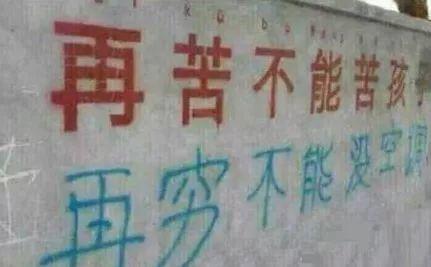 再苦不能苦孩子
再穷不能没空调